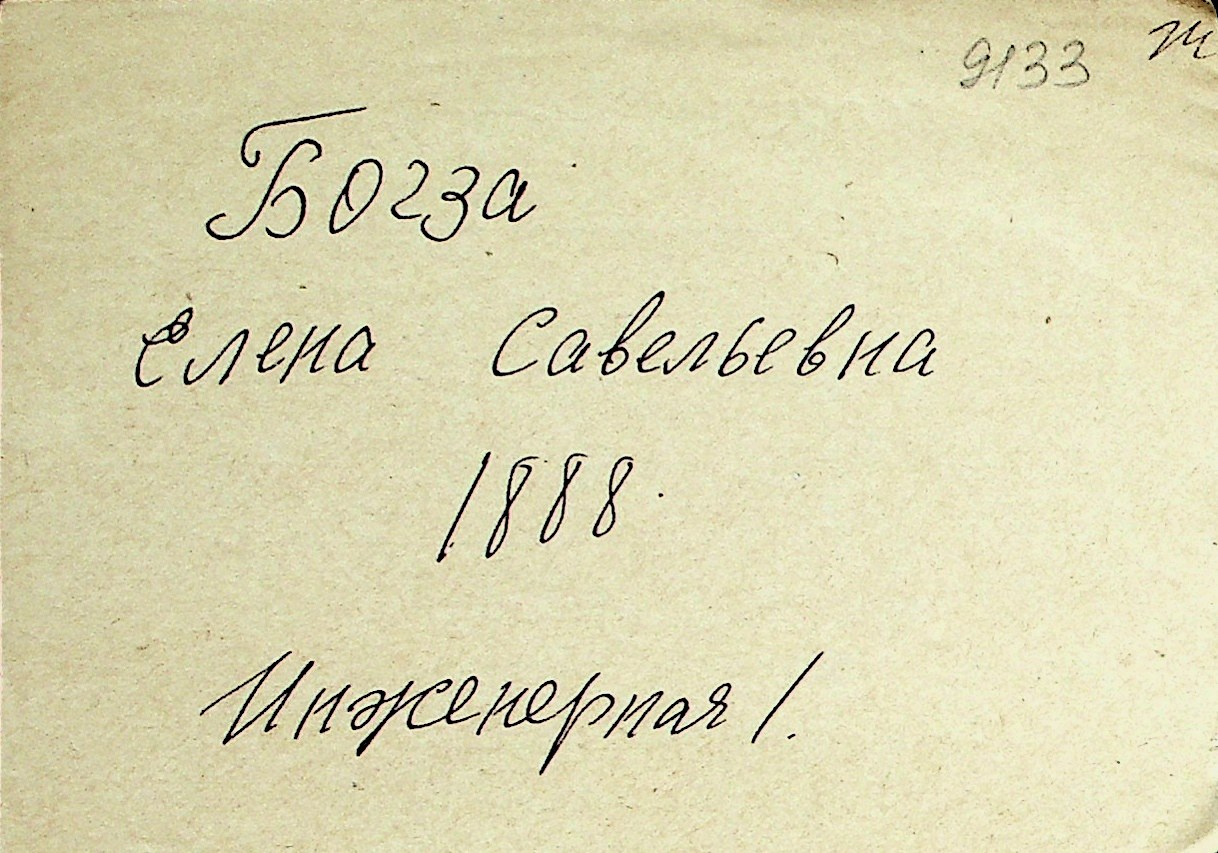 9133
Богза
Елена Савельевна
1888.
Инженерная 1.